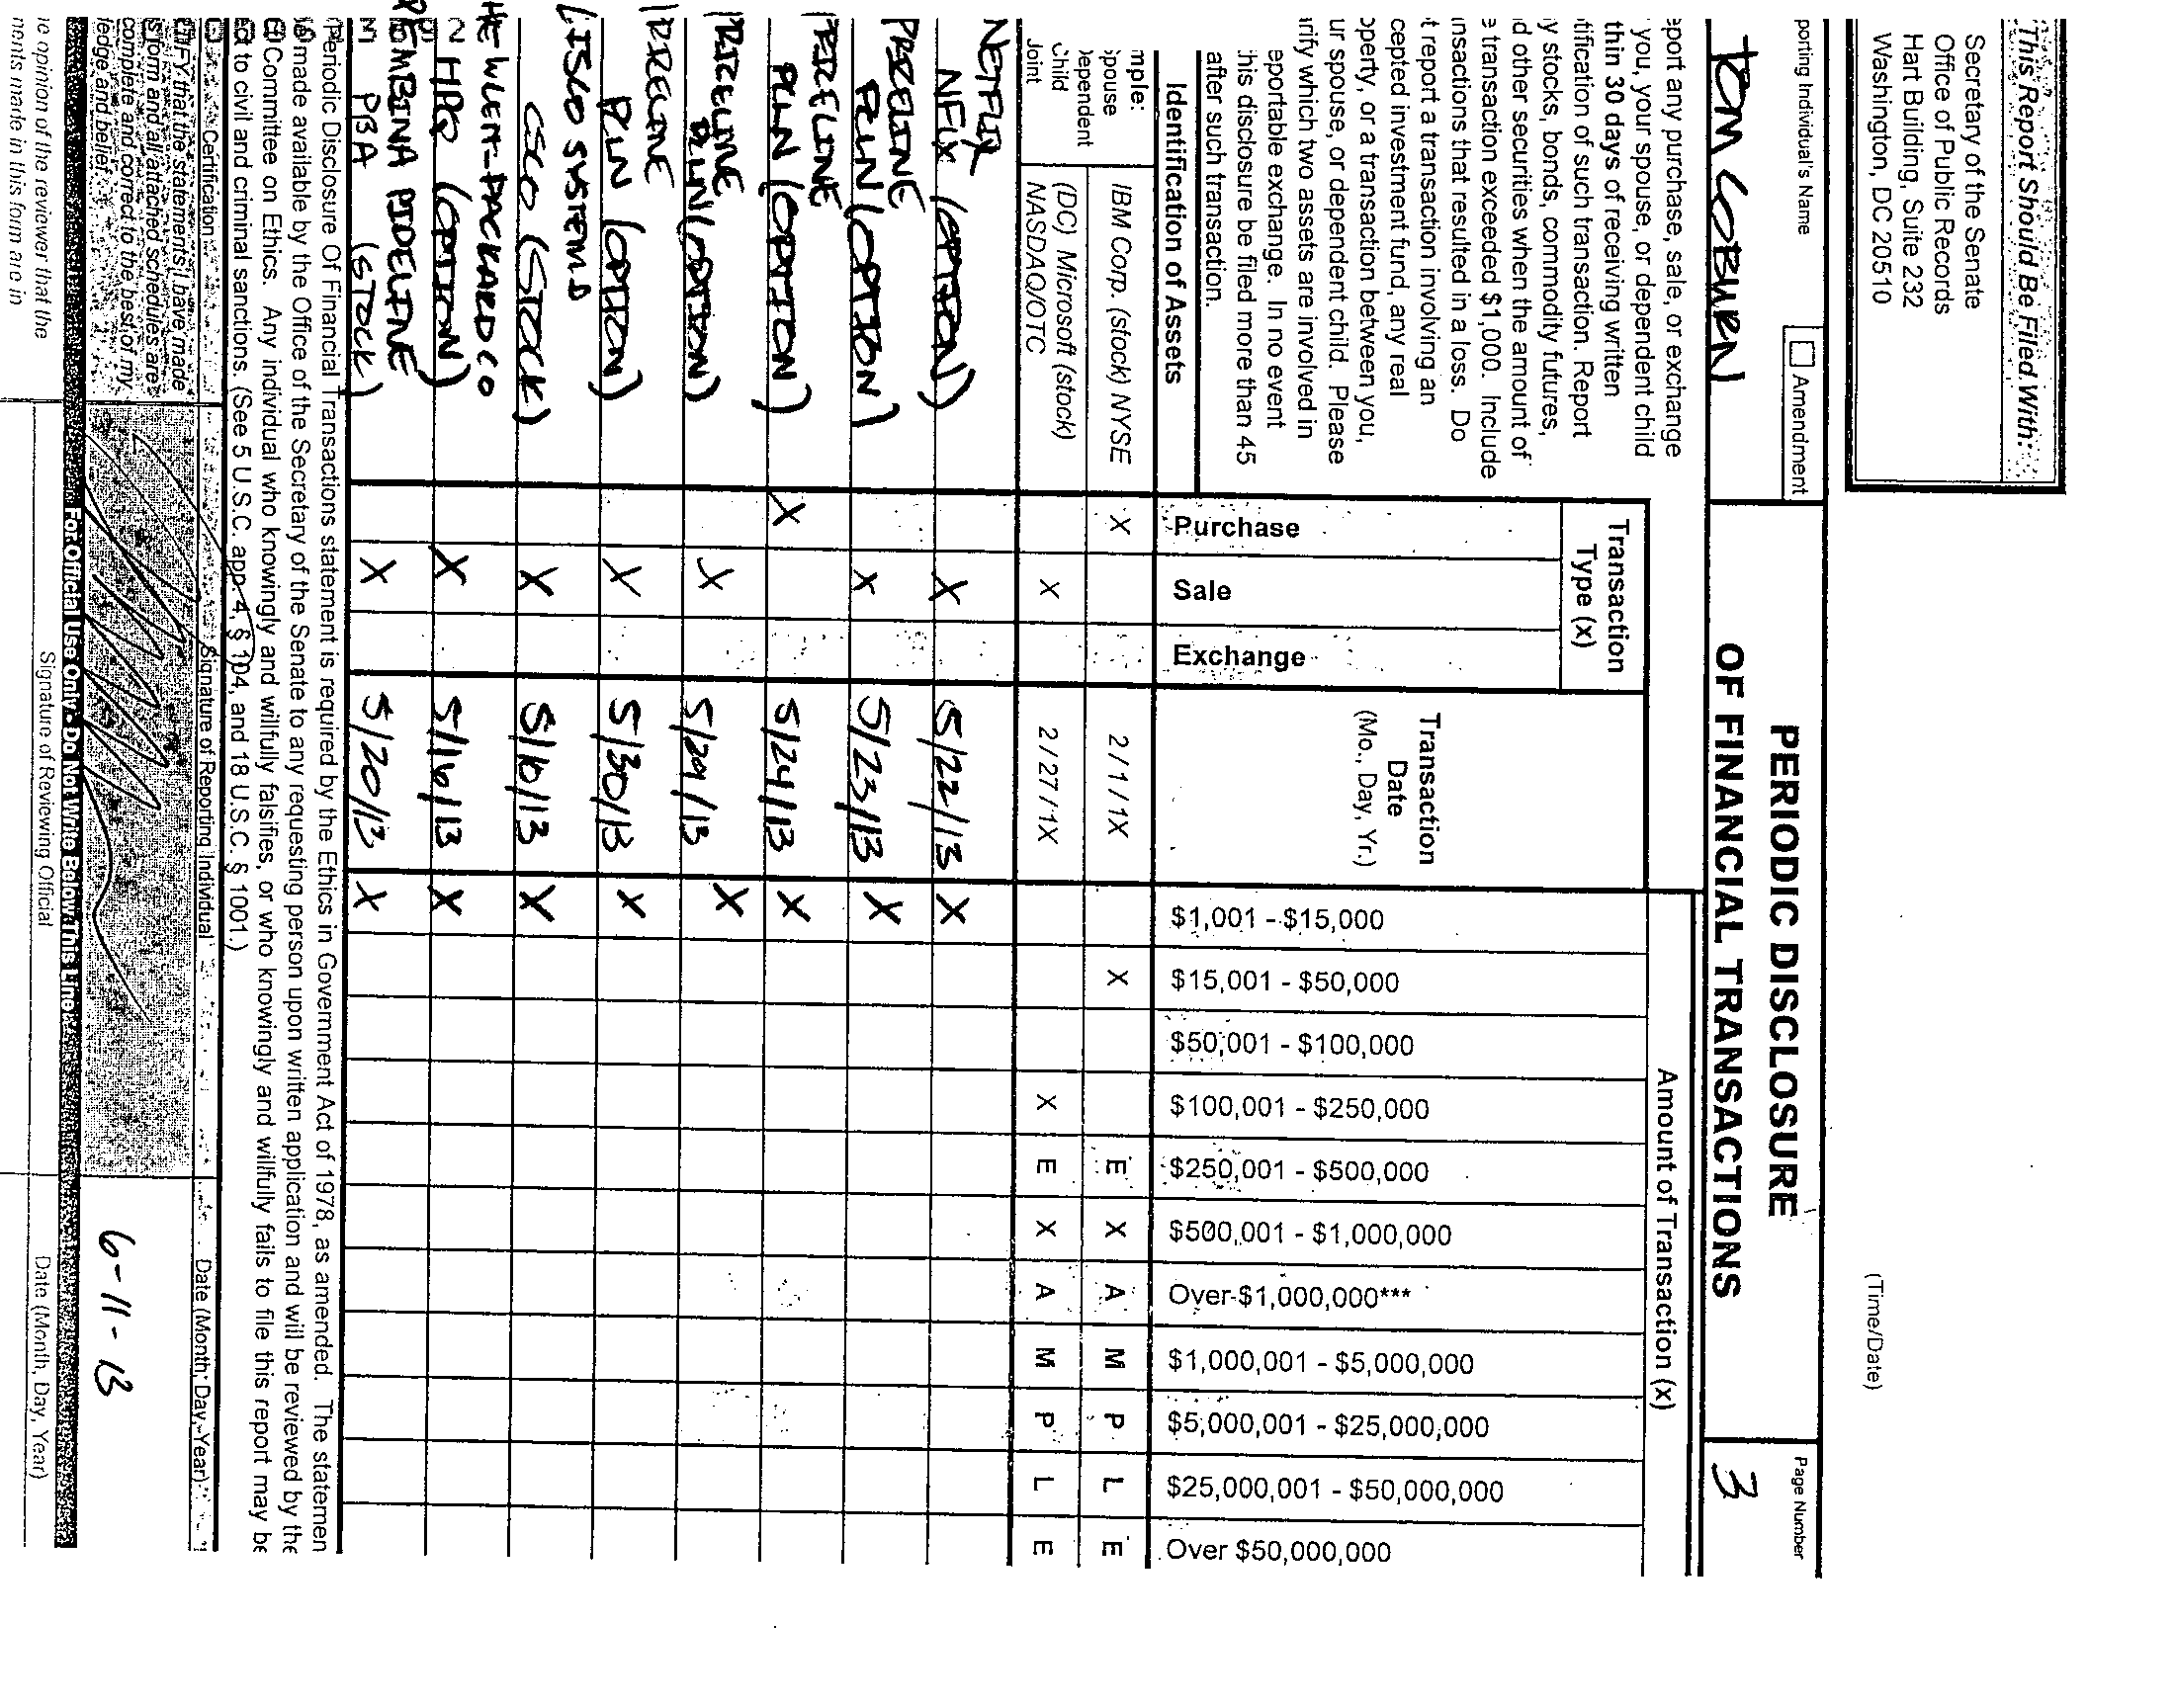 This Report Should Be Filed With:
Secretary of the Senate
Office of Public Records
Hart Building, Suite 232
Washington, DC 20510
(Time/Date)
porting Individual's Name
Amendment
TOM COBURN
PERIODIC DISCLOSURE
OF FINANCIAL TRANSACTIONS
Page Number
3
eport any purchase, sale, or exchange
you, your spouse, or dependent child
thin 30 days of receiving written
tification of such transaction. Report
y stocks, bonds, commodity futures,
d other securities when the amount of
e transaction exceeded $1,000. Include
nsactions that resulted in a loss. Do
t report a transaction involving an
cepted investment fund, any real
operty, or a transaction between you,
ur spouse, or dependent child. Please
rify which two assets are involved in
eportable exchange. In no event
his disclosure be filed more than 45
after such transaction.
Transaction
Type (x)
Transaction
Date
(Mo., Day, Yr.)
Amount of Transaction (x)
Identification of Assets
Purchase
Sale
Exchange
$1,001 - $15,000
$15,001 - $50,000
$50,001 - $100,000
$100,001 - $250,000
$250,001 - $500,000
$500,001 - $1,000,000
Over $1,000,000***
$1,000,001 - $5,000,000
$5,000,001 - $25,000,000
$25,000,001 - $50,000,000
Over $50,000,000
mple:
pouse
ependent
Child
Joint
IBM Corp. (stock) NYSE X 2/1/1X X E X A M P L E
(DC) Microsoft (stock)
NASDAQ/OTC X 2/27/1X X E X A M P L E
NETFLIX
NFLX (OPTION) X 5/22/13 X
PRICELINE
PCLN (OPTION) X 5/23/13 X
PRICELINE
PCLN (OPTION) X 5/24/13 X
PRICELINE
PCLN (OPTION) X 5/29/13 X
PRICELINE
PCLN (OPTION) X 5/30/13 X
CISCO SYSTEMS
CSCO (STOCK) X 5/16/13 X
HEWLETT-PACKARD CO
HPQ (OPTION) X 5/16/13 X
PEMBINA PIPELINE
PBA (STOCK) X 5/20/13 X
Periodic Disclosure Of Financial Transactions statement is required by the Ethics in Government Act of 1978, as amended. The statemen
made available by the Office of the Secretary of the Senate to any requesting person upon written application and will be reviewed by the
Committee on Ethics. Any individual who knowingly and willfully falsifies, or who knowingly and willfully fails to file this report may be
ct to civil and criminal sanctions. (See 5 U.S.C. app. 4, § 104, and 18 U.S.C. § 1001.)
Certification
Signature of Reporting Individual
Date (Month, Day, Year)
TIFY that the statements I have made
s form and all attached schedules are
complete and correct to the best of my
ledge and belief.
6-11-13
For Official Use Only - Do Not Write Below This Line
e opinion of the reviewer that the
ments made in this form are in
Signature of Reviewing Official
Date (Month, Day, Year)